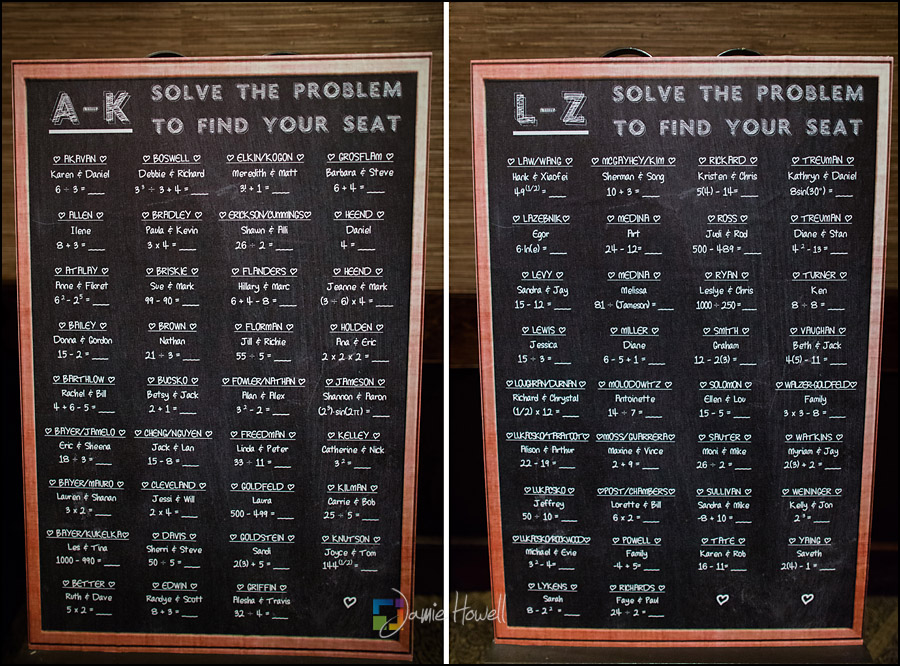 A-K SOLVE THE PROBLEM
TO FIND YOUR SEAT
♡ AKAVAN ♡
Karen & Daniel
6 ÷ 3 = ____
♡ ALLEN ♡
Ilene
8 + 3 = ____
♡ ATALAY ♡
Anne & Fikret
6² - 2⁵ = ____
♡ BAILEY ♡
Donna & Gordon
15 - 2 = ____
♡ BARTHLOW ♡
Rachel & Bill
4 + 6 - 5 = ____
♡ BAYER/JAMELO ♡
Eric & Sheena
18 ÷ 3 = ____
♡ BAYER/MAURO ♡
Lauren & Shanan
3 x 2 = ____
♡ BAYER/KUKELKA ♡
Les & Tina
1000 - 990 = ____
♡ BETTER ♡
Ruth & Dave
5 x 2 = ____
♡ BOSWELL ♡
Debbie & Richard
3³ ÷ 3 + 4 = ____
♡ BRADLEY ♡
Paula & Kevin
3 x 4 = ____
♡ BRISKIE ♡
Sue & Mark
99 - 90 = ____
♡ BROWN ♡
Nathan
21 ÷ 3 = ____
♡ BUCSKO ♡
Betsy & Jack
2 + 1 = ____
♡ CHENG/NGUYEN ♡
Jack & Lan
15 - 8 = ____
♡ CLEVELAND ♡
Jessi & Will
2 x 4 = ____
♡ DAVIS ♡
Sherri & Steve
50 ÷ 5 = ____
♡ EDWIN ♡
Randye & Scott
8 + 3 = ____
♡ ELKIN/KOGON ♡
Meredith & Matt
3! + 1 = ____
♡ ERICKSON/CUMMINGS ♡
Shawn & Alli
26 ÷ 2 = ____
♡ FLANDERS ♡
Hillary & Marc
6 + 4 - 8 = ____
♡ FLORMAN ♡
Jill & Richie
55 ÷ 5 = ____
♡ FOWLER/NATHAN ♡
Alan & Alex
3² - 2 = ____
♡ FREEDMAN ♡
Linda & Peter
33 ÷ 11 = ____
♡ GOLDFELD ♡
Laura
500 - 499 = ____
♡ GOLDSTEIN ♡
Sandi
2(3) + 5 = ____
♡ GRIFFIN ♡
Alesha & Travis
32 ÷ 4 = ____
♡ GROSFLAM ♡
Barbara & Steve
6 + 4 = ____
♡ HEEND ♡
Daniel
4 = ____
♡ HEEND ♡
Jeanne & Mark
(3 ÷ 6) x 4 = ____
♡ HOLDEN ♡
Ana & Eric
2 x 2 x 2 = ____
♡ JAMESON ♡
Shannon & Aaron
♡ KELLEY ♡
Catherine & Nick
3² = ____
♡ KILMAN ♡
Carrie & Bob
25 ÷ 5 = ____
♡ KNUTSON ♡
Joyce & Tom
144^(1/2) = ____
♡
L-Z SOLVE THE PROBLEM
TO FIND YOUR SEAT
♡ LAW/WANG ♡
Hank & Xiaofei
49^(1/2) = ____
♡ LAZEBNIK ♡
Egor
6·ln(e) = ____
♡ LEVY ♡
Sandra & Jay
15 - 12 = ____
♡ LEWIS ♡
Jessica
15 ÷ 3 = ____
♡ LOUGHRAN/DURNAN ♡
Richard & Chrystal
(1/2) x 12 = ____
♡ LUKASKO/TARATOOT ♡
Alison & Arthur
22 - 19 = ____
♡ LUKASKO ♡
Jeffrey
50 ÷ 10 = ____
♡ LUKASKO/ROCKWOOD ♡
Michael & Evie
3² - 4 = ____
♡ LYKENS ♡
Sarah
8 - 2² = ____
♡ MCGAYHEY/KIM ♡
Sherman & Song
10 + 3 = ____
♡ MEDINA ♡
Art
24 - 12 = ____
♡ MEDINA ♡
Melissa
81 ÷ (Jameson) = ____
♡ MILLER ♡
Diane
6 - 5 + 1 = ____
♡ MOLODOWITZ ♡
Antoinette
14 ÷ 7 = ____
♡ MOSS/GUARRERA ♡
Maxine & Vince
2 + 9 = ____
♡ POST/CHAMBERS ♡
Lorette & Bill
6 x 2 = ____
♡ POWELL ♡
Family
-4 + 5 = ____
♡ RICHARDS ♡
Faye & Paul
24 ÷ 2 = ____
♡ RICKARD ♡
Kristen & Chris
5(4) - 14 = ____
♡ ROSS ♡
Judi & Rod
500 - 489 = ____
♡ RYAN ♡
Leslye & Chris
1000 ÷ 250 = ____
♡ SMITH ♡
Graham
12 - 2(3) = ____
♡ SOLOMON ♡
Ellen & Lou
15 - 5 = ____
♡ SAUTER ♡
Moni & Mike
26 ÷ 2 = ____
♡ SULLIVAN ♡
Sandra & Mike
-8 + 10 = ____
♡ TATE ♡
Karen & Rob
16 - 11 = ____
♡
♡ TREUMAN ♡
Kathryn & Daniel
8sin(30°) = ____
♡ TREUMAN ♡
Diane & Stan
4² - 13 = ____
♡ TURNER ♡
Ken
8 ÷ 8 = ____
♡ VAUGHAN ♡
Beth & Jack
4(5) - 11 = ____
♡ WALZER-GOLDFELD ♡
Family
3 x 3 - 8 = ____
♡ WATKINS ♡
Myriam & Jay
2(3) + 2 = ____
♡ WEININGER ♡
Kelly & Jon
2³ = ____
♡ YAING ♡
Saveth
2(4) - 1 = ____
♡
Jamie Howell